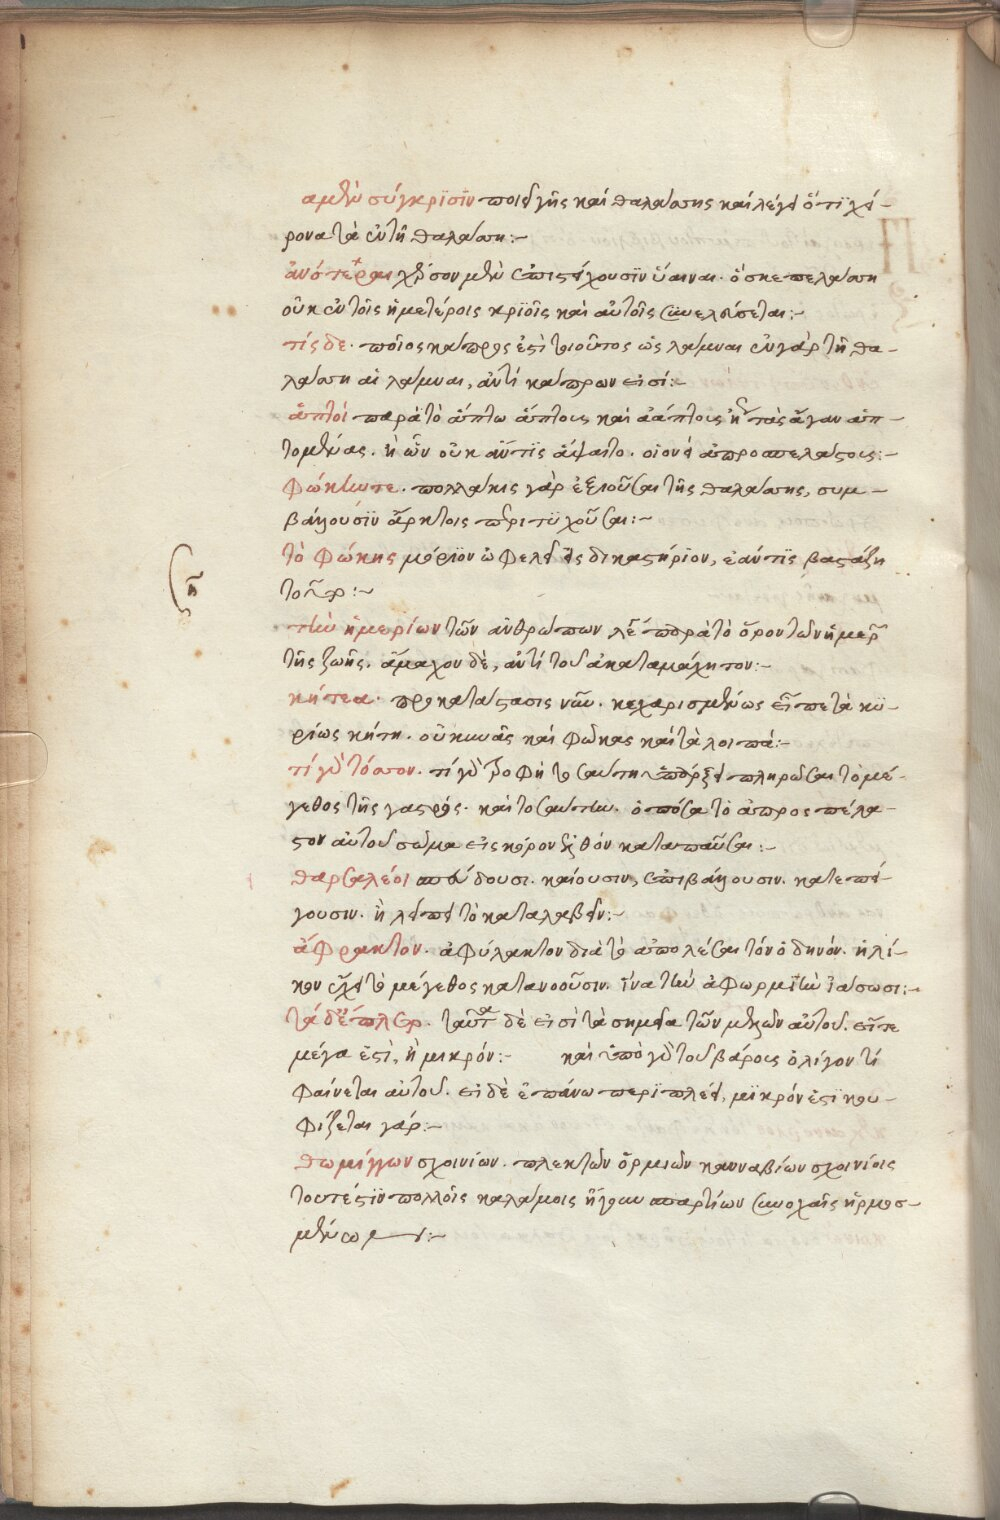 αμὲν σύγκρϊσϊν ποιεῖ γῆς καὶ θαλάσσης καὶ λέγει ὅτι χεί-
ρονα τὰ ἐν τῆ θαλάσση:-
χέρσον μὲν ἐπιστείχουσϊν ὕαιναι. ὅσης πελάσση
οὐκ ἐν τοῖς ἡμετέροις κρϊοῖς καὶ αὐτοῖς συνελεύσεται:-
τίς δε. ποῖος κάπρος ἐστὶ τοιοῦτος ὡς λάμναι ἐν γὰρ τῆ θα-
λάσση αἱ λάμναι, ἀντὶ κάπρων εἰσί:-
ἄπτοι παρὰ τὸ ἅπτω ἅπτοις καὶ ἀάπτοις ἢ τὰς ἄγαν ἁπ-
τομένας. ἢ ὧν οὐκ ἄν τϊς ἅψαιτο. οἱονεὶ ἀπροσπελάστοις:-
φώκαί τε. πολλάκις γὰρ ἐξιοῦσαι τῆς θαλάσσης, συμ-
βάλλουσϊν ἄρκτοις περιτϋχοῦσαι:-
τὸ φώκης μόριον ὠφελεῖ εἰς δικαστήρϊον, ἐάν τϊς βαστάζη
το
τῶν ἡμερίων τῶν ἀνθρώπων παρὰ τὸ ὅρον τῶν ἡμερ
τῆς ζωῆς. ἄμαχον δὲ, ἀντὶ τοῦ ἀκαταμάχητον:-
κήτεα. προκατάστασις νῦν. κεχαρισμένως εἶπε τὰ κϋ-
ρίως κήτη. οὐ κύνας καὶ φώκας καὶ τὰ λοιπά:-
τί γὰρ τόσσον. τί γὰρ τροφὴ τοσαύτη ὑπάρξει πληρῶσαι τὸ μέ-
γεθος τῆς γαστρός. καὶ τοσαύτην. ὁπόσα τὸ ἀπροσπέλα-
στον αὐτοῦ σῶμα εἰς κόρον ἐλθὸν καταπαῦσαι:-
θαρσαλέοι σπεύδουσι. καίουσιν, ἐπιβάλλουσιν. κατεπεί-
γουσιν. ἢ λείπει τὸ καταλαβεῖν:-
ἄφρακτον. ἀφύλακτον διὰ τὸ ἀπολέσαι τὸν ὁδηγόν. ἡλί-
κον ἔχει τὸ μέγεθος κατανοοῦσιν. ἵνα τὴν ἀφωρμὴν ἰάσωσι:-
ταῦτα δὲ εἰσὶ τὰ σημεῖα τῶν μελῶν αὐτοῦ. εἴτε
μέγα ἐστὶ, ἢ μικρόν:- καὶ ὑπὸ γὰρ τοῦ βάρους ὀλίγον τὶ
φαίνεται αὐτοῦ. εἰ δὲ ἐπάνω περϊπλεῖ, μϊκρόν ἐστϊ κου-
φίζεται γάρ:-
θωμίγγων σχοινίων. πλεκτῶν ὁρμιῶν κανναβίων σχοινίοις
τουτέστϊν πολλοῖς καλάμοις ἤγουν σπαρτίων συνοχαῖς ἡρμοσ-
μένων:-